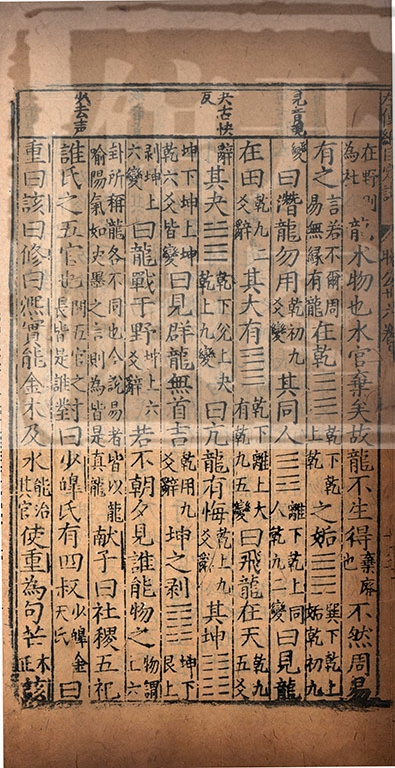 見音現
夬古快反
少去声
在野則為社龍水物也水官棄矣故龍不生得棄廢也不然周易
有之言若不爾周易無緣有龍在乾乾下乾上之姤巽下乾上姤乾初九
變曰潛龍勿用乾初九爻辭其同人離下乾上同人乾九二變曰見龍
在田乾九二爻辭其大有乾下離上大有乾九五變曰飛龍在天乾九五爻
辭其夬乾下兌上夬乾上九變曰亢龍有悔乾上九爻辭其坤
坤下坤上坤乾六爻皆變曰見群龍無首吉乾用九爻辭坤之剝坤下艮上
剝坤上六變曰龍戰于野坤上六爻辭若不朝夕見誰能物之物謂上六
卦所稱龍各不同也今說易者皆以龍喻陽氣如史墨之言則為皆是真龍献子曰社稷五祀
誰氏之五官也問五官之長皆是誰對曰少皥氏有四叔少皥金天氏曰
重曰該曰修曰熙實能金木及水能治其官使重為句芒木正該